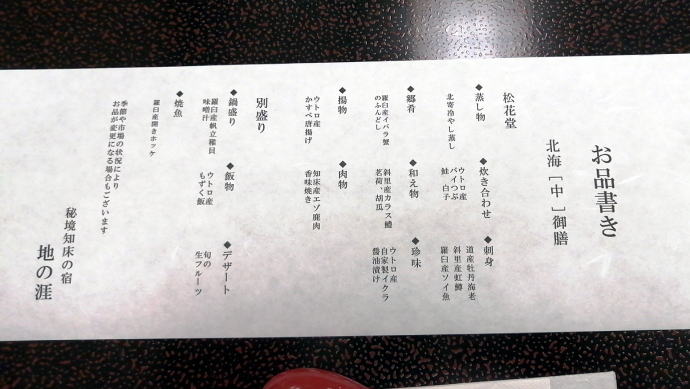 お品書き
北海［中］御膳
松花堂
◆蒸し物
北寄冷やし蒸し
◆炊き合わせ
ウトロ産
パイつぶ
白子
◆刺身
道産牡丹海老
斜里産虹鱒
羅臼産ソイ魚
◆郷肴
羅臼産イバラ蟹
のふんどし
◆和え物
斜里産カラス鰈
茗荷、胡瓜
◆珍味
ウトロ産
自家製イクラ
醤油漬け
◆揚物
ウトロ産
かすべ唐揚げ
◆肉物
知床産エゾ鹿肉
香味焼き
別盛り
◆鍋盛り
羅臼産帆立稚貝
味噌汁
◆飯物
ウトロ産
もずく飯
◆デザート
旬の
生フルーツ
◆焼魚
羅臼産開きホッケ
季節や市場の状況により
お品が変更になる場合もございます
秘境知床の宿
地の涯